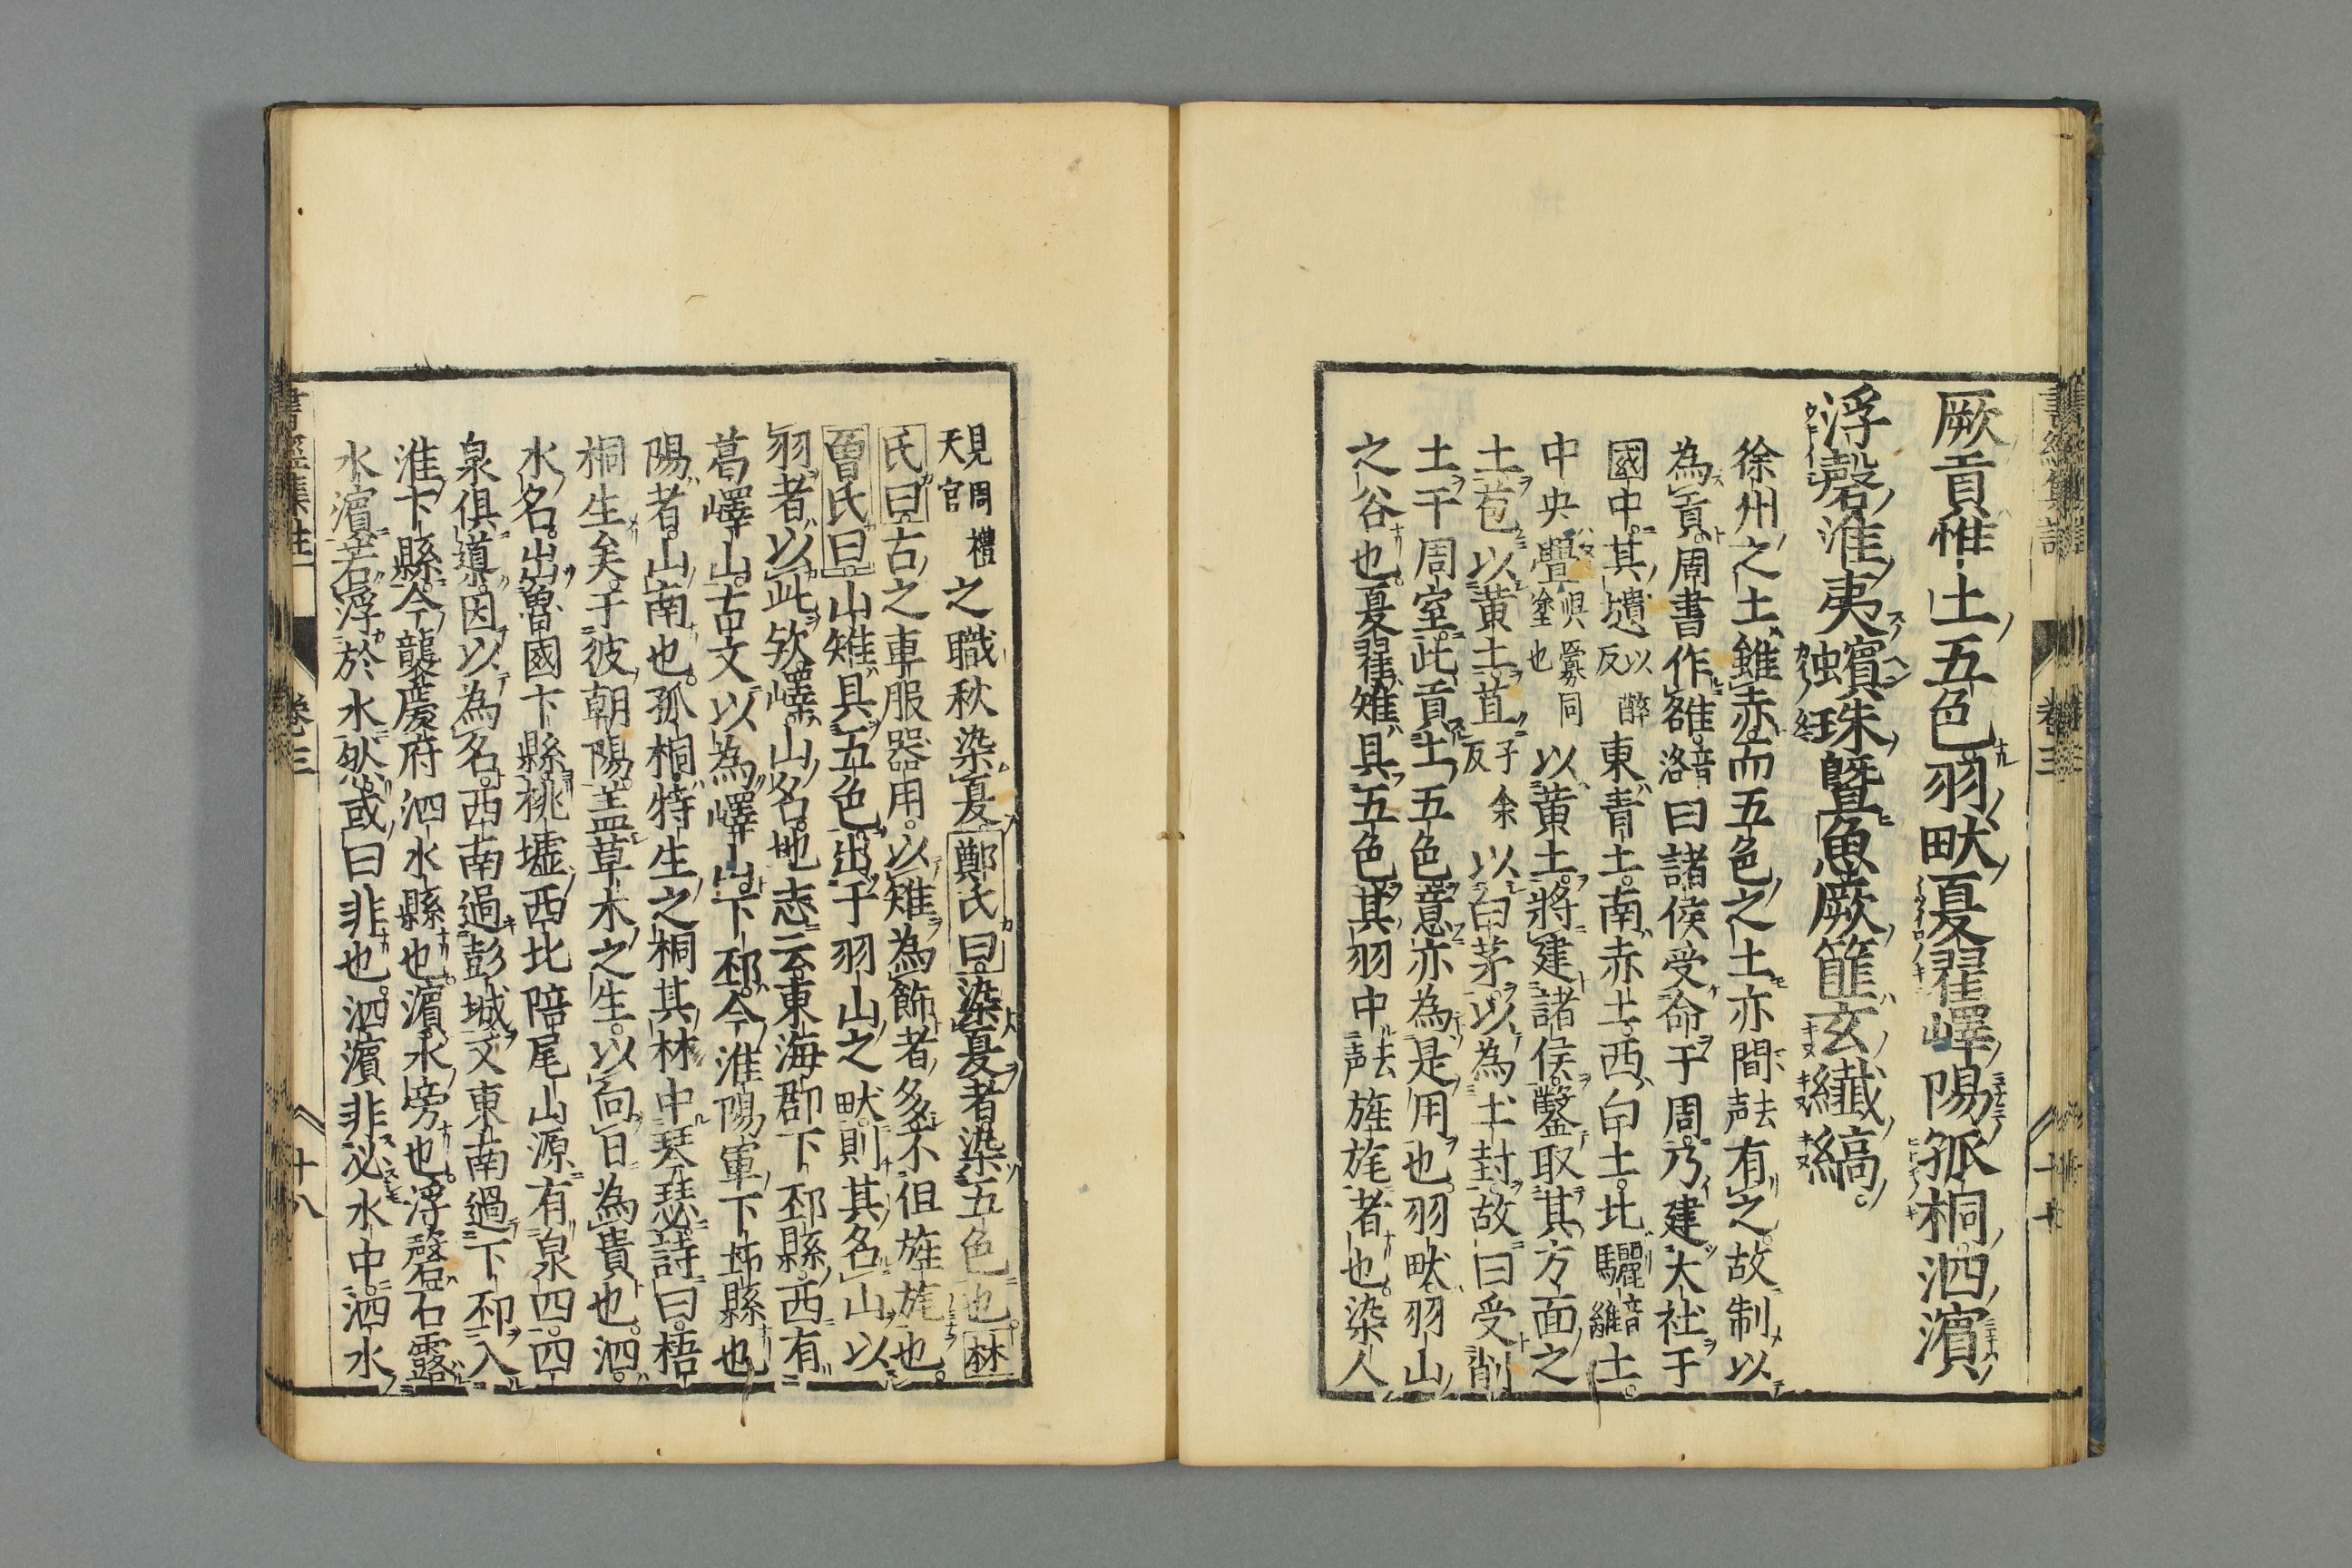 厥貢惟土五色羽畎夏翟嶧陽孤桐泗濱
浮磬淮夷蠙珠曁魚厥篚玄纎縞
徐州之土雖赤而五色之土亦間去声有之故制以
為貢周書作雒音洛曰諸侯受命于周乃建大社于
國中其壝以醉反東青土南赤土西白土北驪音離土
中央舋與釁同塗也以黄土將建諸侯鑿取其方面之
土苞以黄土苴子余反以白茅以為土封故曰受削
土于周室此貢土五色意亦為是用也羽畎羽山
之谷也夏翟雉具五色其羽中去声旌旄者也染人
見周禮天官之職秋染夏鄭氏曰染夏者染五色也林
氏曰古之車服器用以雉為飾者多不但旌旄也
曽氏曰山雉具五色出于羽山之畎則其名山以
羽者以此歟嶧山名地志云東海郡下邳縣西有
葛嶧山古文以為嶧山下邳今淮陽軍下邳縣也
陽者山南也孤桐特生之桐其材中琴瑟詩曰梧
桐生矣于彼朝陽盖草木之生以向日為貴也泗
水名出魯國卞縣桃墟西北陪尾山源有泉四四
泉俱導因以為名西南過彭城又東南過下邳入
淮卞縣今襲慶府泗水縣也濱水旁也浮磬石露
水濱若浮於水然或曰非也泗濱非必水中泗水
卷三
十八